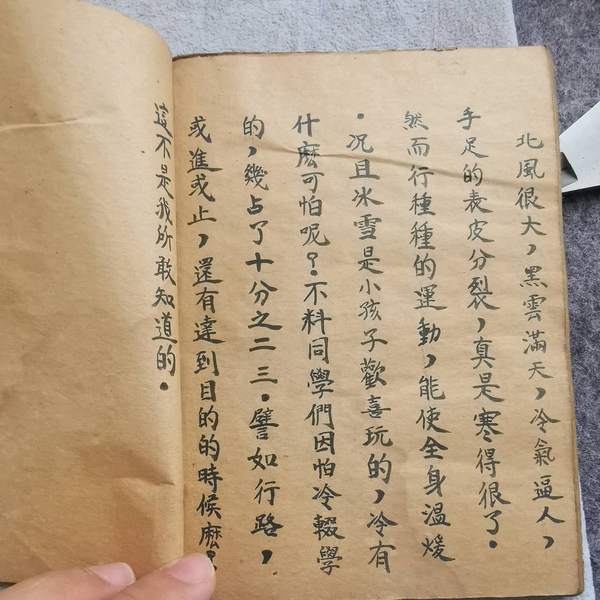 北風很大，黑雲滿天，冷氣逼人，
手足的表皮分裂，真是寒得很了．
然而行種種的運動，能使全身溫煖
．况且冰雪是小孩子歡喜玩的，冷有
什麽可怕呢？不料同學們因怕冷輟學
的，幾占了十分之二三．譬如行路，
或進或止，還有達到目的的時候麽？
這不是我所敢知道的．